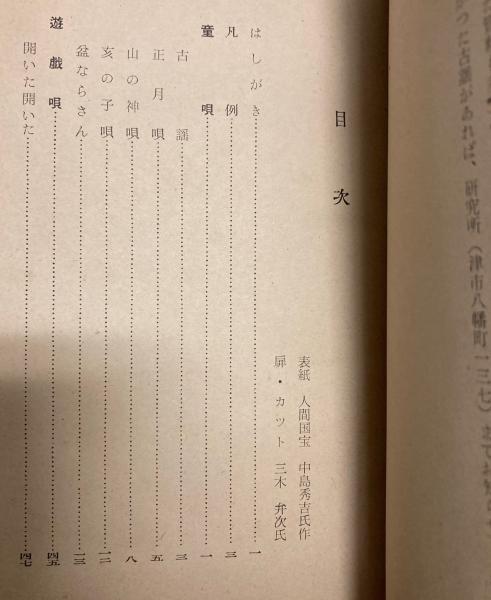 に古謡があれば、研究所（津市八幡町一三七）まで
目次
表紙 人間国宝 中島秀吉氏作
扉・カット 三木 弁次氏
はしがき……一
凡例……三
童唄……一
古謡……三
正月唄……五
山の神唄……八
亥の子唄……一二
盆ならさん……二三
遊戯唄……四五
開いた開いた……四七